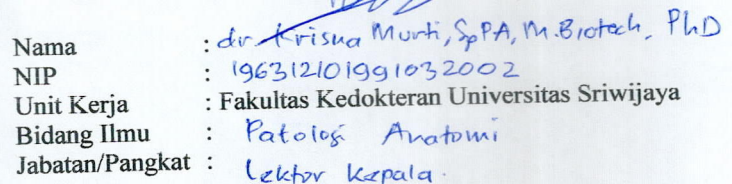 Nama : dr. Krisna Murti, SpPA, M.Biotech, PhD
NIP : 196312101991032002
Unit Kerja : Fakultas Kedokteran Universitas Sriwijaya
Bidang Ilmu : Patologi Anatomi
Jabatan/Pangkat : Lektor Kepala.